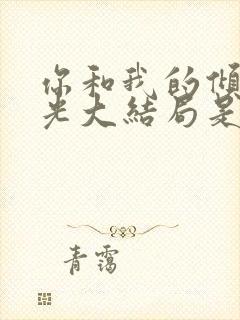 你和我的倾
光大结局是
青霭